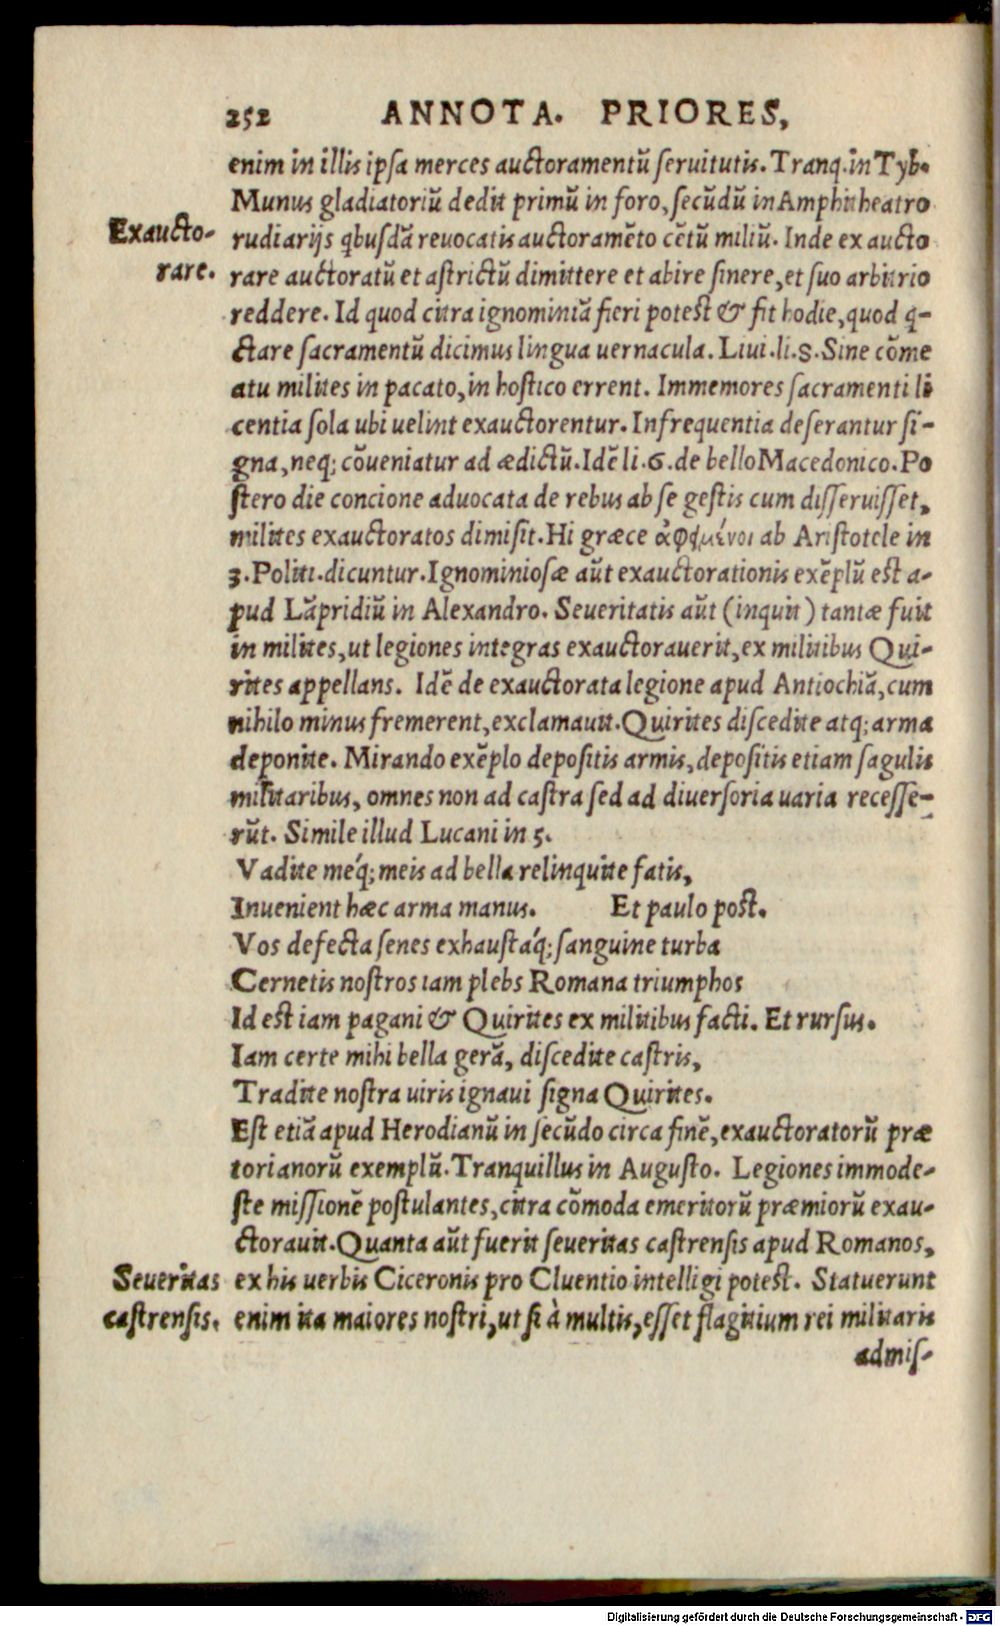 252 ANNOTA. PRIORES,
enim in illis ipſa merces auctoramentū ſeruitutis. Tranq. in Tyb.
Munus gladiatoriū dedit primū in foro, ſecūdū in Amphitheatro
Exaucto-
rare.
rudiarijs qbuſdā reuocatis auctoramēto cētū miliū. Inde exaucto
rare auctoratū et aſtrictū dimittere et abire ſinere, et ſuo arbitrio
reddere. Id quod citra ignominiā fieri poteſt & fit hodie, quod q-
ctare ſacramentū dicimus lingua uernacula. Liui. li. 8. Sine cōme
atu milites in pacato, in hoſtico errent. Immemores ſacramenti li
centia ſola ubi uelint exauctorentur. Infrequentia deſerantur ſi-
gna, neq; cōueniatur ad ædictū. Idē li. 6. de bello Macedonico. Po
ſtero die concione aduocata de rebus ab ſe geſtis cum diſſeruiſſet,
milites exauctoratos dimiſit. Hi græce ἀφφμένοι ab Ariſtotele in
3. Politi. dicuntur. Ignominioſæ aūt exauctorationis exēplū eſt a-
pud Lāpridiū in Alexandro. Seueritatis aūt (inquit) tantæ fuit
in milites, ut legiones integras exauctorauerit, ex militibus Qui-
rites appellans. Idē de exauctorata legione apud Antiochiā, cum
nihilo minus fremerent, exclamauit. Quirites diſcedite atq; arma
deponite. Mirando exēplo depoſitis armis, depoſitis etiam ſagulis
militaribus, omnes non ad caſtra ſed ad diuerſoria uaria receſſe-
rūt. Simile illud Lucani in 5.
Vadite méq; meis ad bella relinquite fatis,
Inuenient hæc arma manus. Et paulo poſt.
Vos defecta ſenes exhauſtáq; ſanguine turba
Cernetis noſtros iam plebs Romana triumphos
Id eſt iam pagani & Quirites ex militibus facti. Et rurſus.
Iam certe mihi bella gerā, diſcedite caſtris,
Tradite noſtra uiris ignaui ſigna Quirites.
Eſt etiā apud Herodianū in ſecūdo circa finē, exauctoratorū præ
torianorū exemplū. Tranquillus in Auguſto. Legiones immode-
ſte miſſionē poſtulantes, citra cōmoda emeritorū præmiorū exau-
ctorauit. Quanta aūt fuerit ſeueritas caſtrenſis apud Romanos,
Seueritas
caſtrenſis.
ex his uerbis Ciceronis pro Cluentio intelligi poteſt. Statuerunt
enim ita maiores noſtri, ut ſi à multis, eſſet flagitium rei militaris
admiſ-
Digitalisierung gefördert durch die Deutsche Forschungsgemeinschaft - DFG